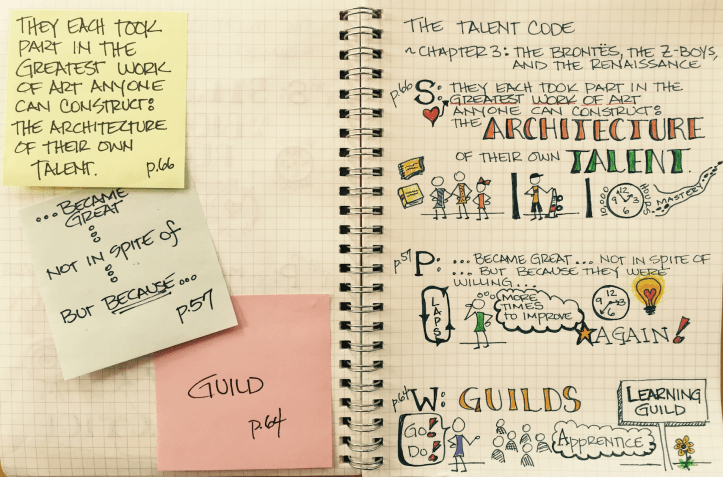 THEY EACH TOOK
PART IN THE
GREATEST WORK
OF ART ANYONE
CAN CONSTRUCT:
THE ARCHITECTURE
OF THEIR OWN
TALENT.
p.66
...BECAME
GREAT
NOT IN SPITE OF
BUT BECAUSE...
p.57
GUILD
p.64
THE TALENT CODE
~CHAPTER 3: THE BRONTËS, THE Z-BOYS,
AND THE RENAISSANCE
p.66 S: THEY EACH TOOK PART IN THE
GREATEST WORK OF ART
ANYONE CAN CONSTRUCT:
THE ARCHITECTURE
OF THEIR OWN TALENT
10,000 12 3 6 9 HOURS
MASTERY
p.57 P: ...BECAME GREAT... NOT IN SPITE OF
...BUT BECAUSE THEY WERE
WILLING...
LAPS
MORE
TIMES
TO IMPROVE
12 3 6 9
AGAIN!
p.64 W: GUILDS
GO!
DO!
APPRENTICE
LEARNING
GUILD